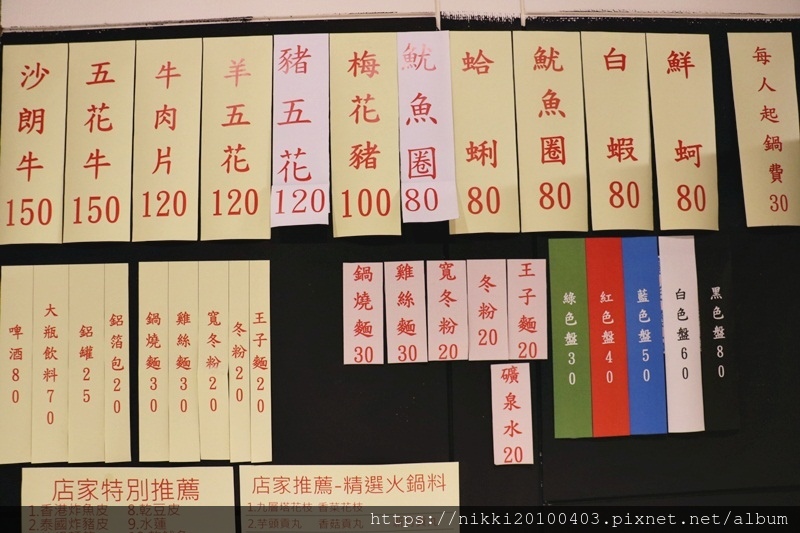 沙朗牛 150
五花牛 150
牛肉片 120
羊五花 120
豬五花 120
梅花豬 100
魷魚圈 80
蛤蜊 80
魷魚圈 80
白蝦 80
鮮蚵 80
每人起鍋費 30
啤酒 80
大瓶飲料 70
鋁罐 25
鋁箔包 20
鍋燒麵 30
雞絲麵 30
寬冬粉 20
冬粉 20
王子麵 20
鍋燒麵 30
雞絲麵 30
寬冬粉 20
冬粉 20
王子麵 20
礦泉水 20
綠色盤 30
紅色盤 40
藍色盤 50
白色盤 60
黑色盤 80
店家特別推薦
1.香港炸魚皮 8.乾豆皮
2.泰國炸豬皮 9.水蓮
店家推薦-精選火鍋料
1.九層塔花枝 香菜花枝
2.芋頭貢丸 香菇貢丸
https://nikki20100403.pixnet.net/album